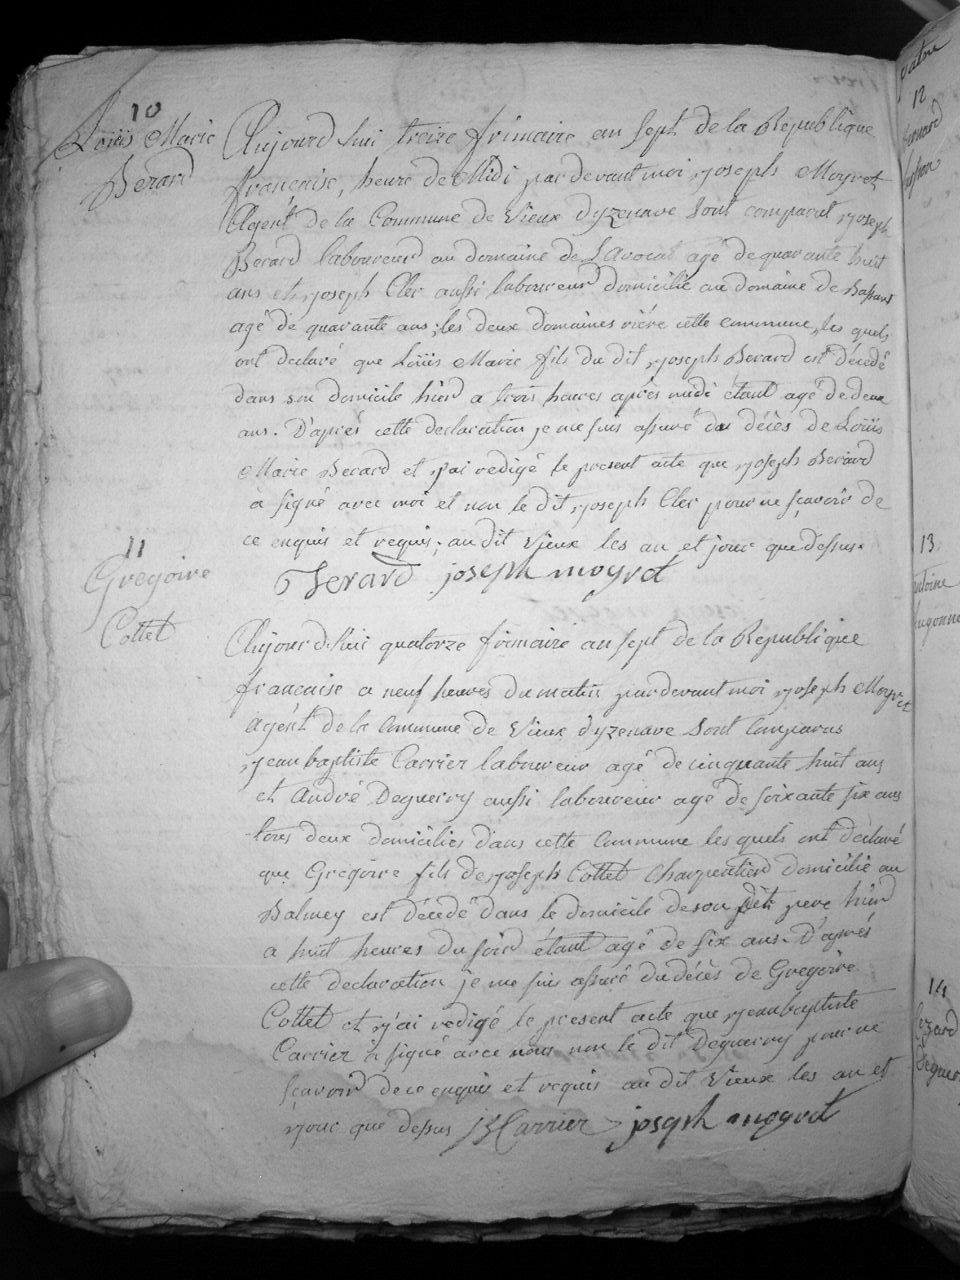 10
Loüis Marie
Berard
Aujourd'hui treize frimaire an sept de la Republique
francaise, heure de Midi pardevant moi joseph Moyret
Agent de la Commune de Vieux dyzenave sont comparut joseph
Berard laboureur au domaine de agé de quarante huit
ans et joseph Cler aussi laboureur domicilié au domaine de
agé de quarante ans; les deux domaines riére cette commune, les quels
ont declaré que Loüis Marie fils du dit joseph Berard est décédé
dans son domicile hier a trois heures après midi étant agé de deux
ans. D'aprés cette declaration je me suis assuré du décès de Loüis
Marie Berard et j'ai redigé le present acte que joseph Berard
a signé avec moi et non le dit joseph Cler pour ne sçavoir de
ce enquis et requis; au dit Vieux les an et jour que dessus.
Berard joseph moyret
11
Gregoire
Cottet
Aujourd'hui quatorze frimaire an sept de la Republique
francaise a neuf heures du matin pardevant moi joseph Moyret
agent de la Commune de Vieux dyzenave sont comparus
jean baptiste Carrier laboureur agé de cinquante huit ans
et André Deguerry aussi laboureur agé de soixante six ans
tous deux domiciliés dans cette commune les quels ont déclaré
que Gregoire fils de joseph Cottet Charpentier domicilié au
Balmey est décédé dans le domicile de son dit pere hier
a huit heures du soir étant agé de six ans. D'aprés
cette declaration je me suis assuré du décès de Gregoire
Cottet et j'ai redigé le present acte que jean baptiste
Carrier a signé avec nous non le dit Deguerry pour ne
sçavoir de ce enquis et requis au dit Vieux les an et
jour que dessus JB Carrier joseph moyret
12
13
14